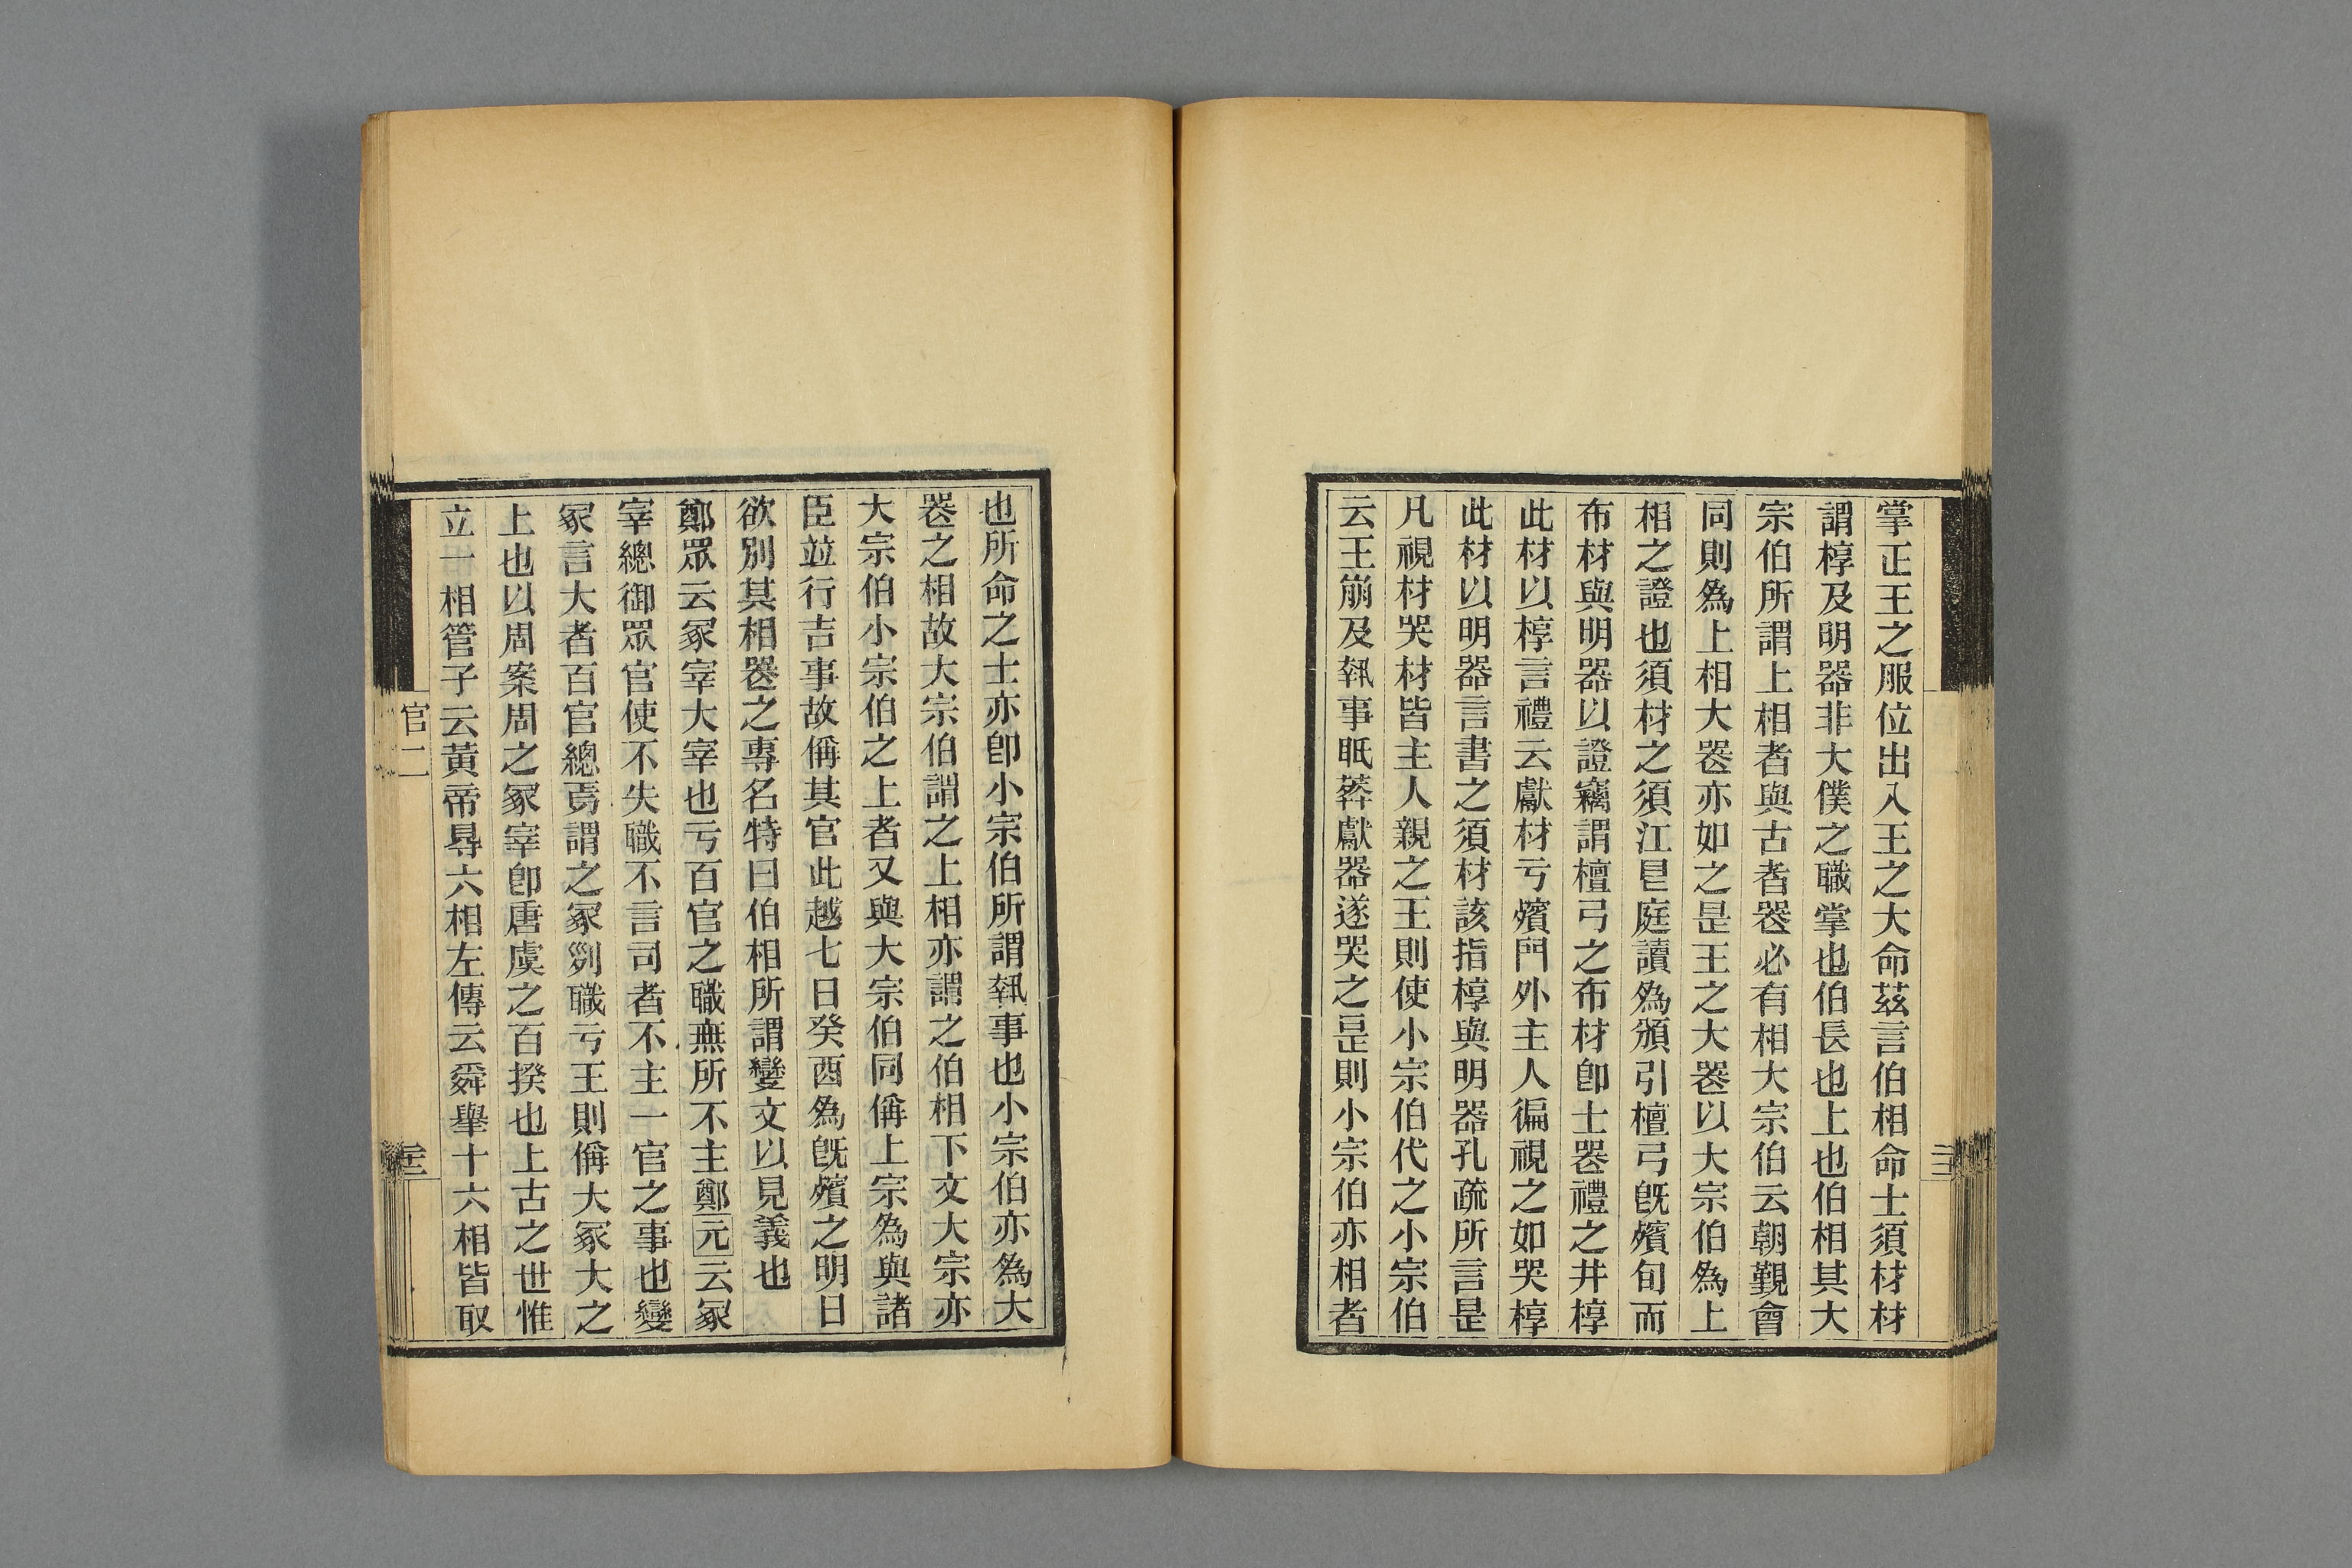 掌正王之服位出入王之大命茲言伯相命士須材材
謂椁及明器非大僕之職掌也伯長也上也伯相其大
宗伯所謂上相者與古者喪必有相大宗伯云朝覲會
同則為上相大喪亦如之是王之大喪以大宗伯為上
相之證也須材之須江皀庭讀為頒引檀弓旣殯旬而
布材與明器以證竊謂檀弓之布材卽士喪禮之井椁
此材以椁言禮云獻材亏殯門外主人徧視之如哭椁
此材以明器言書之須材該指椁與明器孔疏所言是
凡視材哭材皆主人親之王則使小宗伯代之小宗伯
云王崩及執事眂葬獻器遂哭之是則小宗伯亦相者
也所命之士亦卽小宗伯所謂執事也小宗伯亦為大
喪之相故大宗伯謂之上相亦謂之伯相下文大宗亦
大宗伯小宗伯之上者又與大宗伯同偁上宗為與諸
臣竝行吉事故偁其官此越七日癸酉為旣殯之明日
欲別其相喪之專名特曰伯相所謂變文以見義也
鄭眾云冢宰大宰也亏百官之職無所不主鄭元云冢
宰總御眾官使不失職不言司者不主一官之事也變
冢言大者百官總焉謂之冢列職亏王則偁大冢大之
上也以周案周之冢宰卽唐虞之百揆也上古之世惟
立一相管子云黃帝㝵六相左傳云舜舉十六相皆取
官二